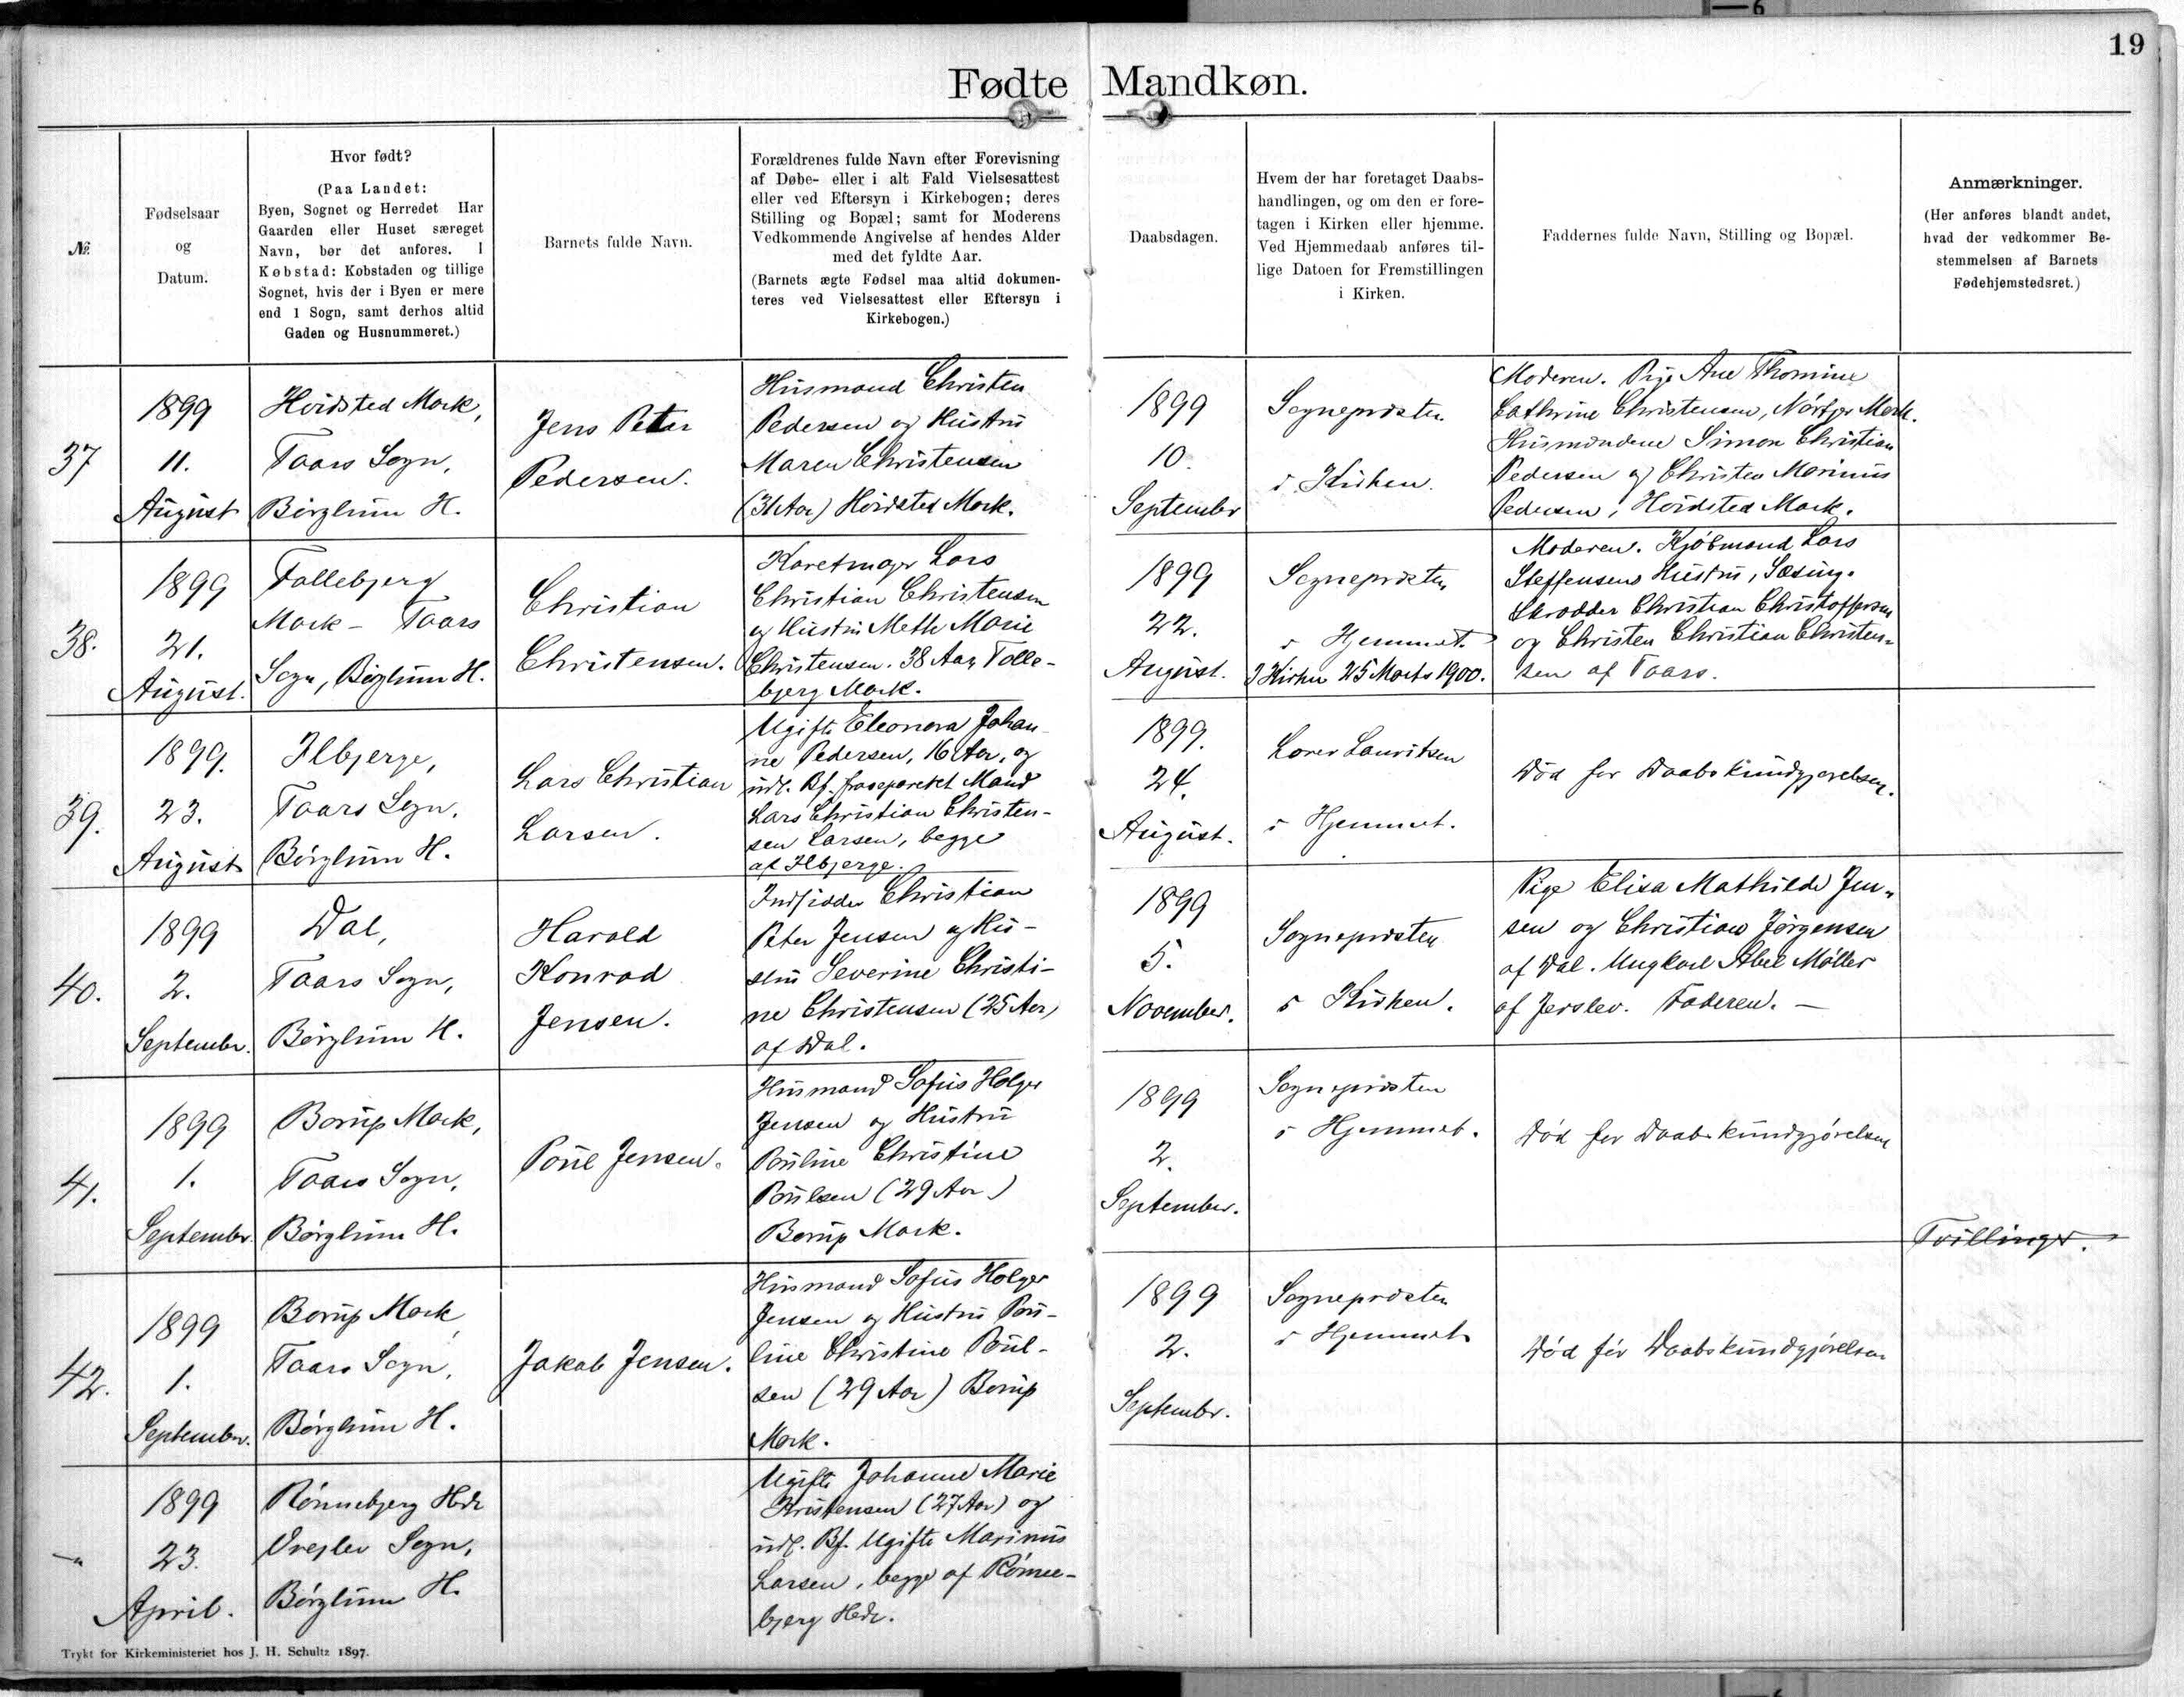 6
19
Fødte Mandkøn.
№
Fødselsaar
og
Datum.
Hvor født?
(Paa Landet:
Byen, Sognet og Herredet Har
Gaarden eller Huset særeget
Navn, bør det anføres. I
Købstad: Købstaden og tillige
Sognet, hvis der i Byen er mere
end 1 Sogn, samt derhos altid
Gaden og Husnummeret.)
Barnets fulde Navn.
Forældrenes fulde Navn efter Forevisning
af Døbe- eller i alt Fald Vielsesattest
eller ved Eftersyn i Kirkebogen; deres
Stilling og Bopæl; samt for Moderens
Vedkommende Angivelse af hendes Alder
med det fyldte Aar.
(Barnets ægte Fødsel maa altid dokumen-
teres ved Vielsesattest eller Eftersyn i
Kirkebogen.)
Daabsdagen.
Hvem der har foretaget Daabs-
handlingen, og om den er fore-
tagen i Kirken eller hjemme.
Ved Hjemmedaab anføres til-
lige Datoen for Fremstillingen
i Kirken.
Faddernes fulde Navn, Stilling og Bopæl.
Anmærkninger.
(Her anføres blandt andet,
hvad der vedkommer Be-
stemmelsen af Barnets
Fødehjemstedsret.)
37
1899
11.
August
Hvidsted Mark,
Taars Sogn,
Børglum H.
Jens Peter
Pedersen.
Husmand Christen
Pedersen og Hustru
Maren Christensen
(31 Aar) Hvidsted Mark.
1899
10.
September
Sognepræsten
i Kirken.
Moderen. Pige Ane Thomine
Cathrine Christensen, Mark.
Husmændene Simon Christian
Pedersen og Christen Marinus
Pedersen, Hvidsted Mark.
38.
1899
21.
August.
Follebjerg
Mark - Taars
Sogn, Børglum H.
Christian
Christensen.
Karetmager Lars
Christian Christensen
og Hustru Mette Marie
Christensen. 38 Aar, Tolle-
bjerg Mark.
1899
22.
August.
Sognepræsten
i Hjemmet.
I Kirken 25 Marts 1900.
Moderen. Kjøbmand Lars
Steffensens Hustru, Sæsing.
Skrædder Christian Christoffersen
og Christen Christian Christen-
sen af Taars.
39.
1899.
23.
August
Ilbjerge,
Taars Sogn,
Børglum H.
Lars Christian
Larsen.
Ugifte Eleonora Johan-
ne Pedersen, 16 Aar, og
udl. Bf. fraseparet Mand
Lars Christian Christen-
sen Larsen, begge
af Ilbjerge.
1899.
24.
August.
Lærer Lauritsen
i Hjemmet.
Død før Daabskundgjørelsen.
40.
1899
2.
September.
Dal,
Taars Sogn,
Børglum H.
Harald
Konrad
Jensen.
Indsidder Christian
Peter Jensen og Hu-
stru Severine Christi-
ne Christensen (25 Aar)
af Dal.
1899
5.
November.
Sognepræsten
i Kirken.
Pige Elisa Mathilde Jen-
sen og Christian Jørgensen
af Dal. Ungkarl Abel Møller
af Jerslev. Faderen. —
41.
1899
1.
September.
Borup Mark,
Taars Sogn,
Børglum H.
Poul Jensen.
Husmand Sofus Holger
Jensen og Hustru
Pouline Christine
Poulsen (29 Aar)
Borup Mark.
1899
2.
September.
Sognepræsten
i Hjemmet.
Død før Daabskundgjørelsen
Tvillinger.
42.
1899
1.
September.
Borup Mark
Taars Sogn,
Børglum H.
Jakob Jensen.
Husmand Sofus Holger
Jensen og Hustru Pou-
line Christine Poul-
sen (29 Aar) Borup
Mark.
1899
2.
September.
Sognepræsten
i Hjemmet
Død før Daabskundgjørelsen
— "
1899
23.
April.
Rønnebjerg Hede
Vrejlev Sogn,
Børglum H.
Ugifte Johanne Marie
Kristensen (27 Aar) og
udl. Bf. Ugifte Marinus
Larsen, begge af Rønne-
bjerg Hede.
Trykt for Kirkeministeriet hos J. H. Schultz 1897.